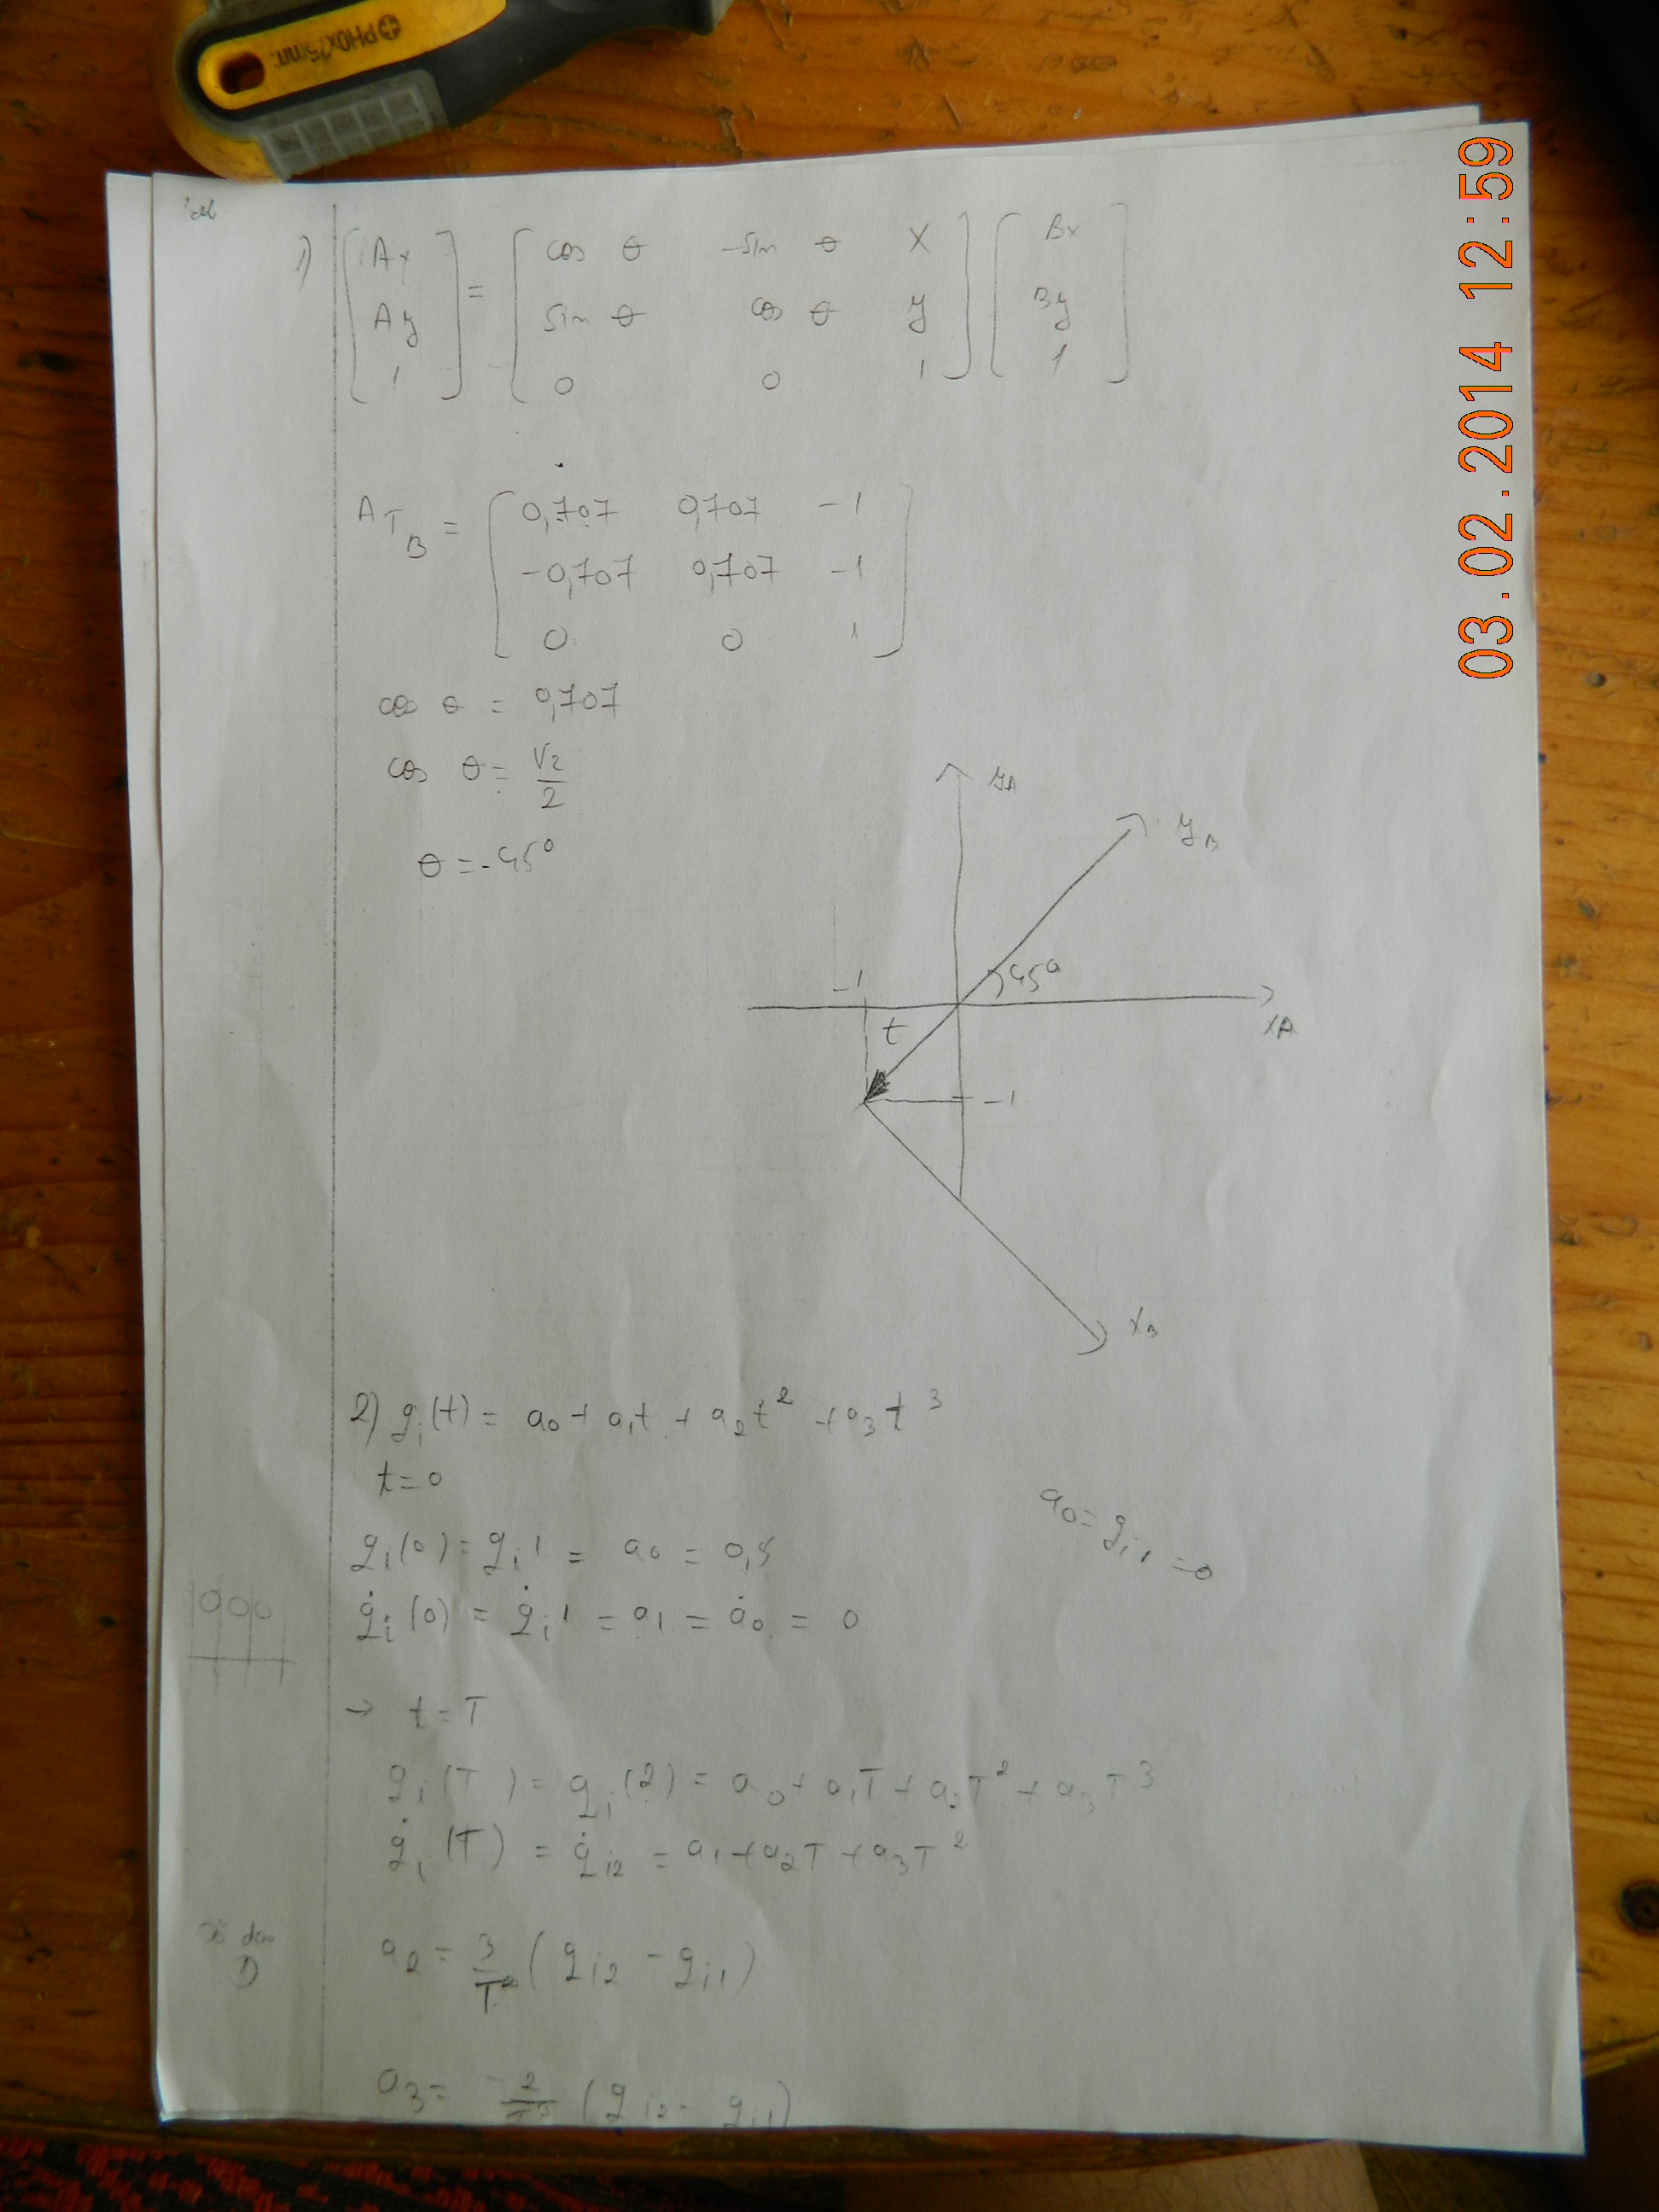 PH0x75mm
03.02.2014 12:59
1) [Ax Ay 1] = [cos θ -sin θ X; sin θ cos θ y; 0 0 1] [Bx By 1]
A T B = [0,707 0,707 -1; -0,707 0,707 -1; 0 0 1]
cos θ = 0,707
cos θ = √2/2
θ = -45°
yA
yB
45°
-1
t
xA
-1
xB
2) qi(t) = a0 + a1t + a2t² + a3t³
t=0
a0 = qi1 = 0
qi(0) = qi1 = a0 = 0,5
q̇i(0) = q̇i1 = a1 = ȧ0 = 0
000
→ t=T
qi(T) = qi(2) = a0 + a1T + a2T² + a3T³
q̇i(T) = q̇i2 = a1 + a2T + a3T²
a2 = 3/T² (qi2 - qi1)
a3 = -2/T³ (qi2 - qi1)